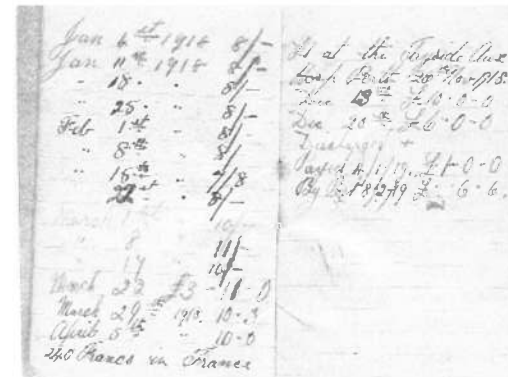 Jan 4 st 1918 8/-
Jan 11 th 1918 8/-
" 18 . " 8/-
" 25 . . 8/-
Feb 1 st - 8/-
" 8 th " 8/-
" 15 th " 7/8
" 22 " 8/-
March 10/-
" 8 11/-
" 10/-
March 23 £3 - 11 - 0
March 29 1918. 10-3
April 5 th " 10-0
240 Francs in France
at the Tayside Aux
Hosp Perth 20 th Nov 1918.
Dec 13 th £ 10-0-0
Dec 20 th £ 6-0-0
Discharged +
Payed 4/1/19. £1-0-0
By 18/2/19 £ - 6-6.